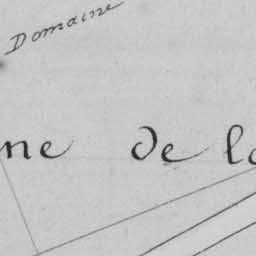 Domaine
ne de la